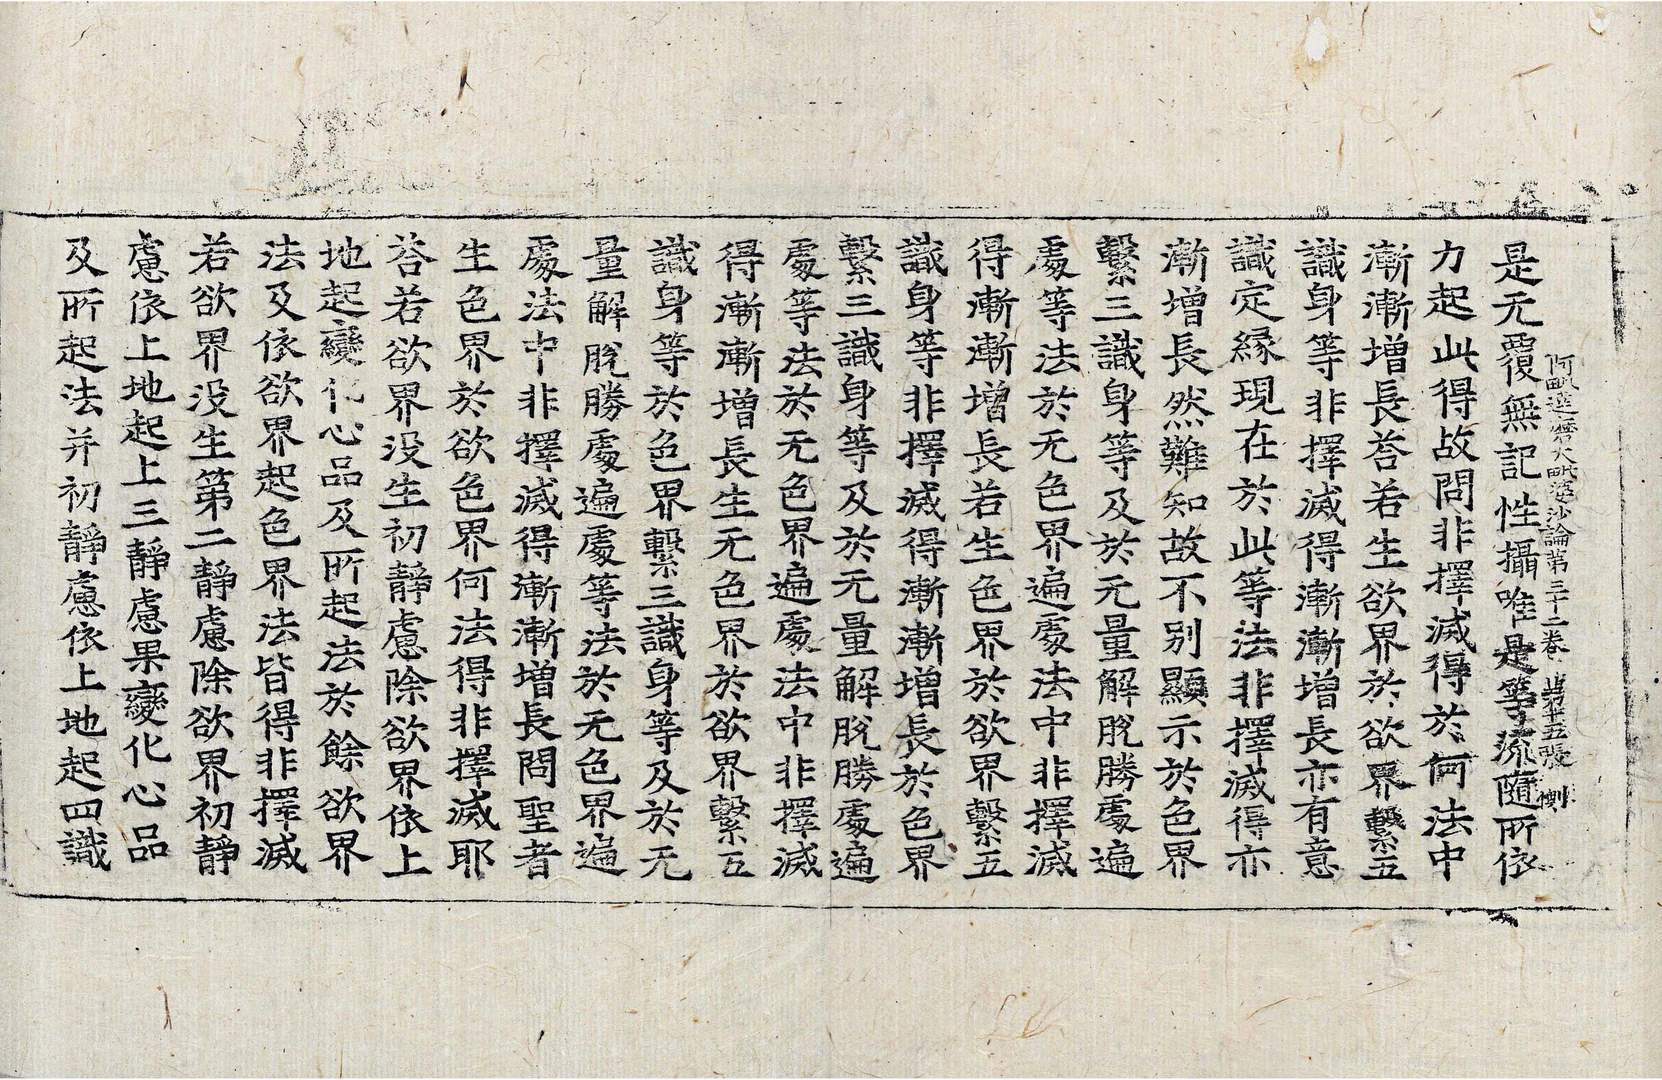 阿毗達磨大毗婆沙論第三十二卷 第十五張 惻
是无覆無記性攝唯是等流隨所依
力起此得故問非擇滅得於何法中
漸漸增長荅若生欲界於欲界繫五
識身等非擇滅得漸漸增長亦有意
識定緣現在於此等法非擇滅得亦
漸增長然難知故不別顯示於色界
繫三識身等及於无量解脫勝處遍
處等法於无色界遍處法中非擇滅
得漸漸增長若生色界於欲界繫五
識身等非擇滅得漸漸增長於色界
繫三識身等及於无量解脫勝處遍
處等法於无色界遍處法中非擇滅
得漸漸增長生无色界於欲界繫五
識身等於色界繫三識身等及於无
量解脫勝處遍處等法於无色界遍
處法中非擇滅得漸漸增長問聖者
生色界於欲色界何法得非擇滅耶
荅若欲界没生初靜慮除欲界依上
地起變化心品及所起法於餘欲界
法及依欲界起色界法皆得非擇滅
若欲界没生第二靜慮除欲界初靜
慮依上地起上三靜慮果變化心品
及所起法并初靜慮依上地起四識